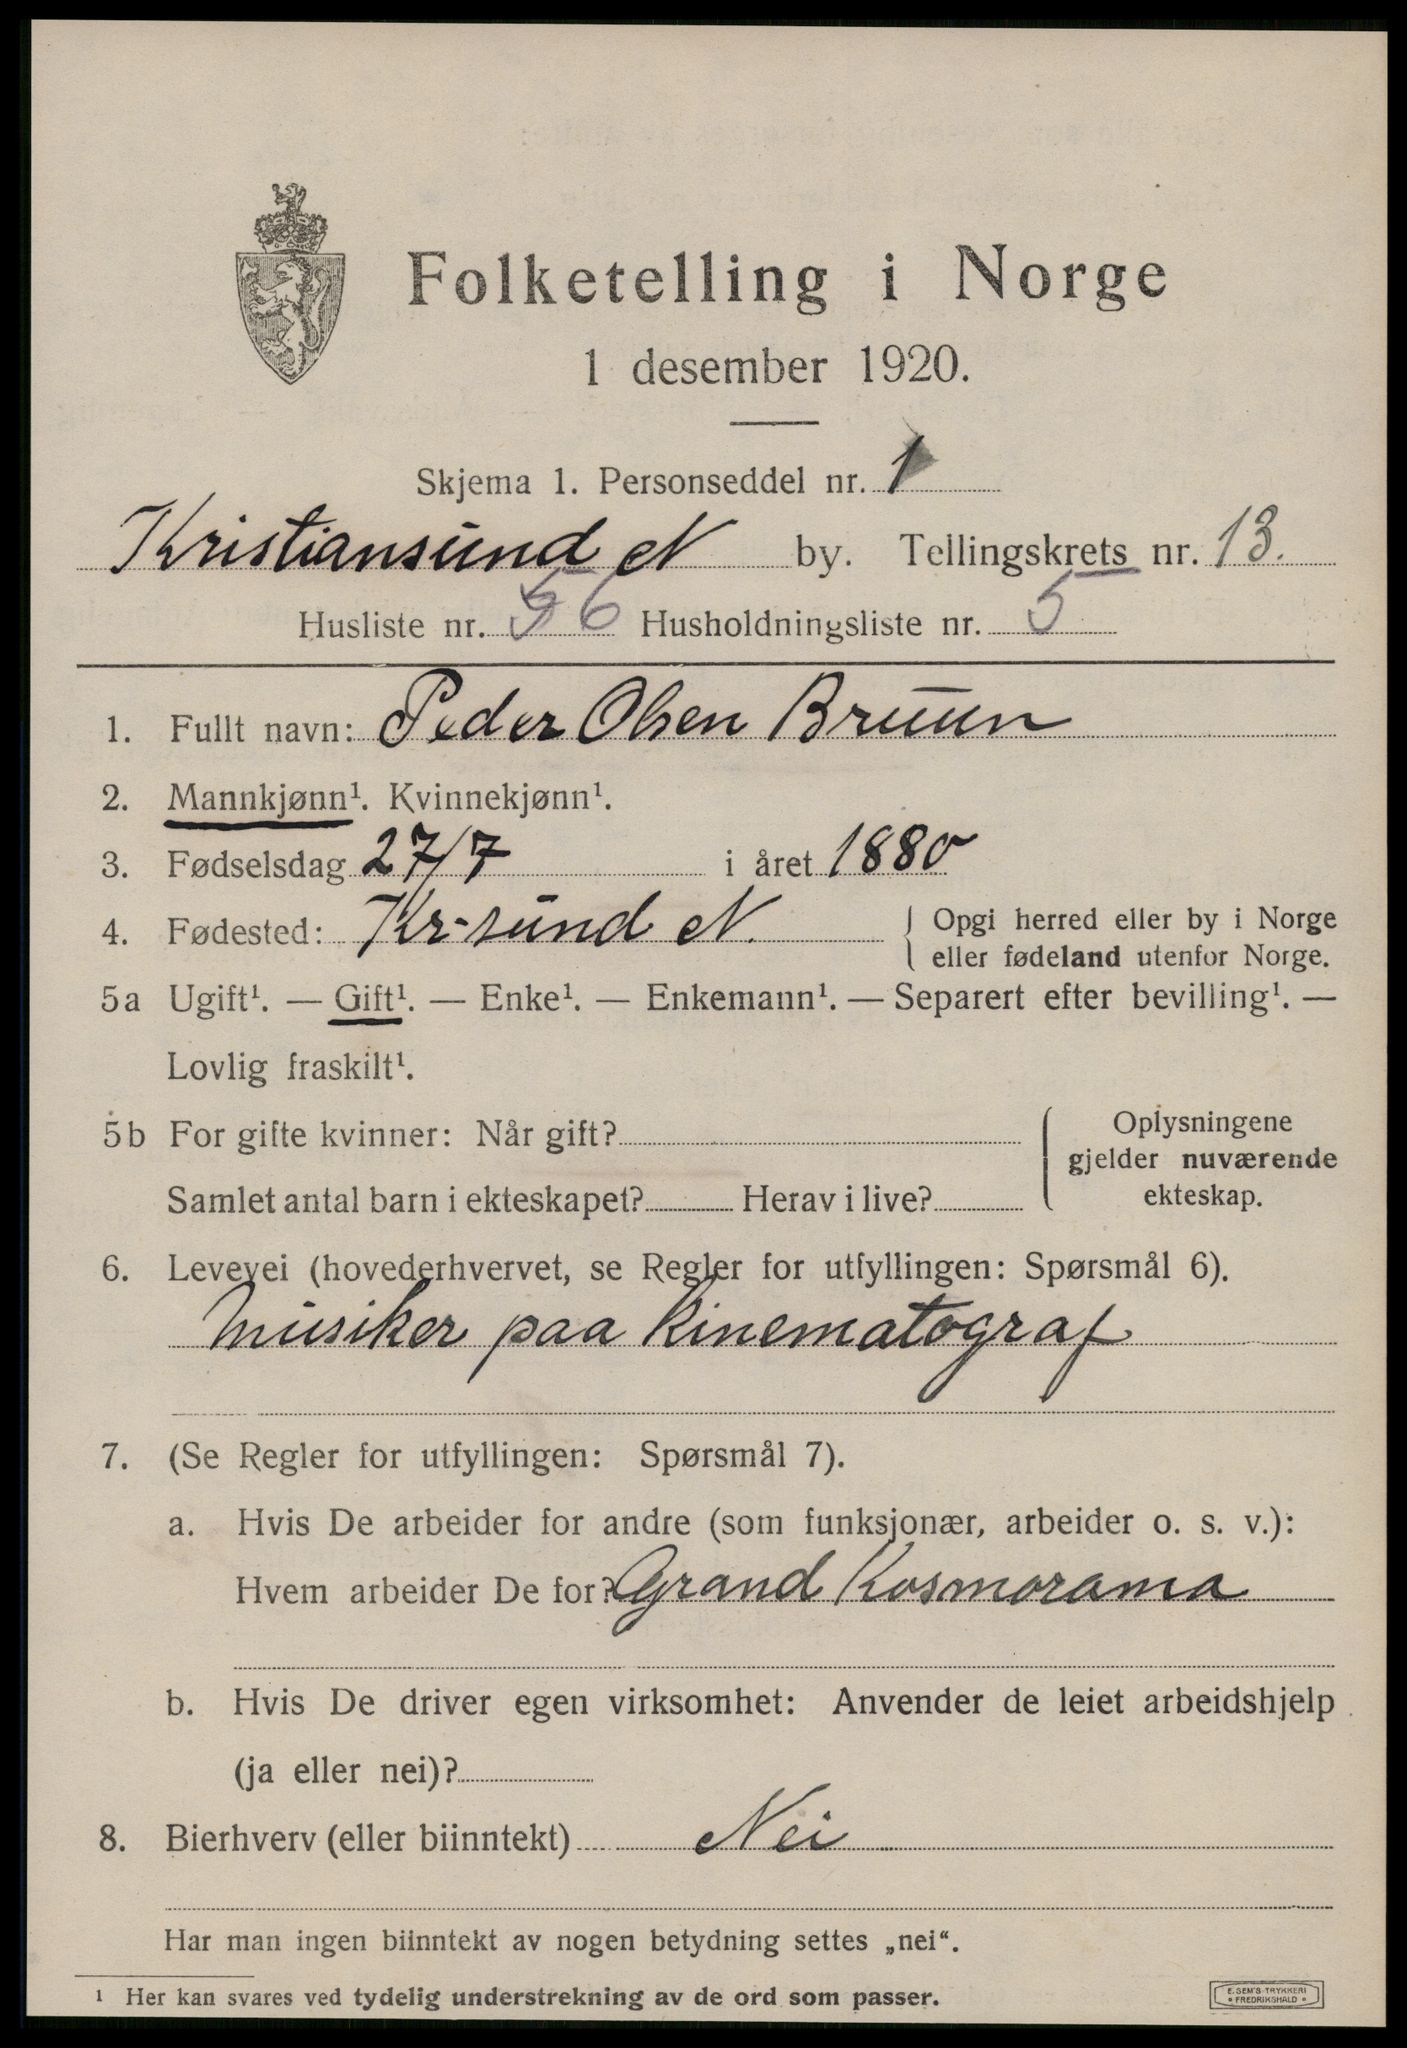 Folketelling i Norge
1 desember 1920.
Skjema 1. Personseddel nr. 1
Kristiansund N by. Tellingskrets nr. 13.
Husliste nr. 56 Husholdningsliste nr. 5
1. Fullt navn: Peder Olsen Bruun
2. Mannkjønn¹. Kvinnekjønn¹.
3. Fødselsdag 27/7 i året 1880
4. Fødested: Kr-sund N. { Opgi herred eller by i Norge
eller fødeland utenfor Norge.
5a Ugift¹. — Gift¹. — Enke¹. — Enkemann¹. — Separert efter bevilling¹. —
Lovlig fraskilt¹.
5b For gifte kvinner: Når gift?
Samlet antal barn i ekteskapet? Herav i live?
Oplysningene
gjelder nuværende
ekteskap.
6. Levevei (hovederhvervet, se Regler for utfyllingen: Spørsmål 6).
Musiker paa Kinematograf
7. (Se Regler for utfyllingen: Spørsmål 7).
a. Hvis De arbeider for andre (som funksjonær, arbeider o. s. v.):
Hvem arbeider De for? Grand Kosmorama
b. Hvis De driver egen virksomhet: Anvender de leiet arbeidshjelp
(ja eller nei)?
8. Bierhverv (eller biinntekt) Nei
Har man ingen biinntekt av nogen betydning settes „nei“.
¹ Her kan svares ved tydelig understrekning av de ord som passer.
E. SEM'S TRYKKERI
• FREDRIKSHALD •